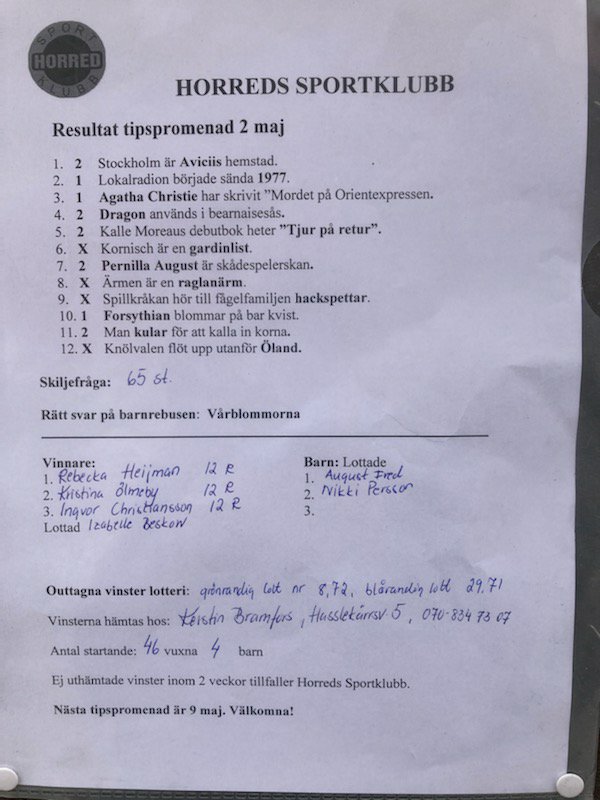 SPORT
HORRED
KLUBB
HORREDS SPORTKLUBB
Resultat tipspromenad 2 maj
1. 2 Stockholm är Aviciis hemstad.
2. 1 Lokalradion började sända 1977.
3. 1 Agatha Christie har skrivit ”Mordet på Orientexpressen.
4. 2 Dragon används i bearnaisesås.
5. 2 Kalle Moreaus debutbok heter ”Tjur på retur”.
6. X Kornisch är en gardinlist.
7. 2 Pernilla August är skådespelerskan.
8. X Ärmen är en raglanärm.
9. X Spillkråkan hör till fågelfamiljen hackspettar.
10. 1 Forsythian blommar på bar kvist.
11. 2 Man kular för att kalla in korna.
12. X Knölvalen flöt upp utanför Öland.
Skiljefråga: 65 st.
Rätt svar på barnrebusen: Vårblommorna
Vinnare:
1. Rebecka Heijman 12 R
2. Kristina Ölmeby 12 R
3. Ingvor Christiansson 12 R
Lottad Izabelle Beskow
Barn: Lottade
1. August Fred
2. Nikki Persson
3.
Outtagna vinster lotteri: grönrandig lott nr 8,72, blårandig lott 29,71
Vinsterna hämtas hos: Kerstin Bramfors, Hasslekärrsv. 5, 070-834 73 07
Antal startande: 46 vuxna 4 barn
Ej uthämtade vinster inom 2 veckor tillfaller Horreds Sportklubb.
Nästa tipspromenad är 9 maj. Välkomna!